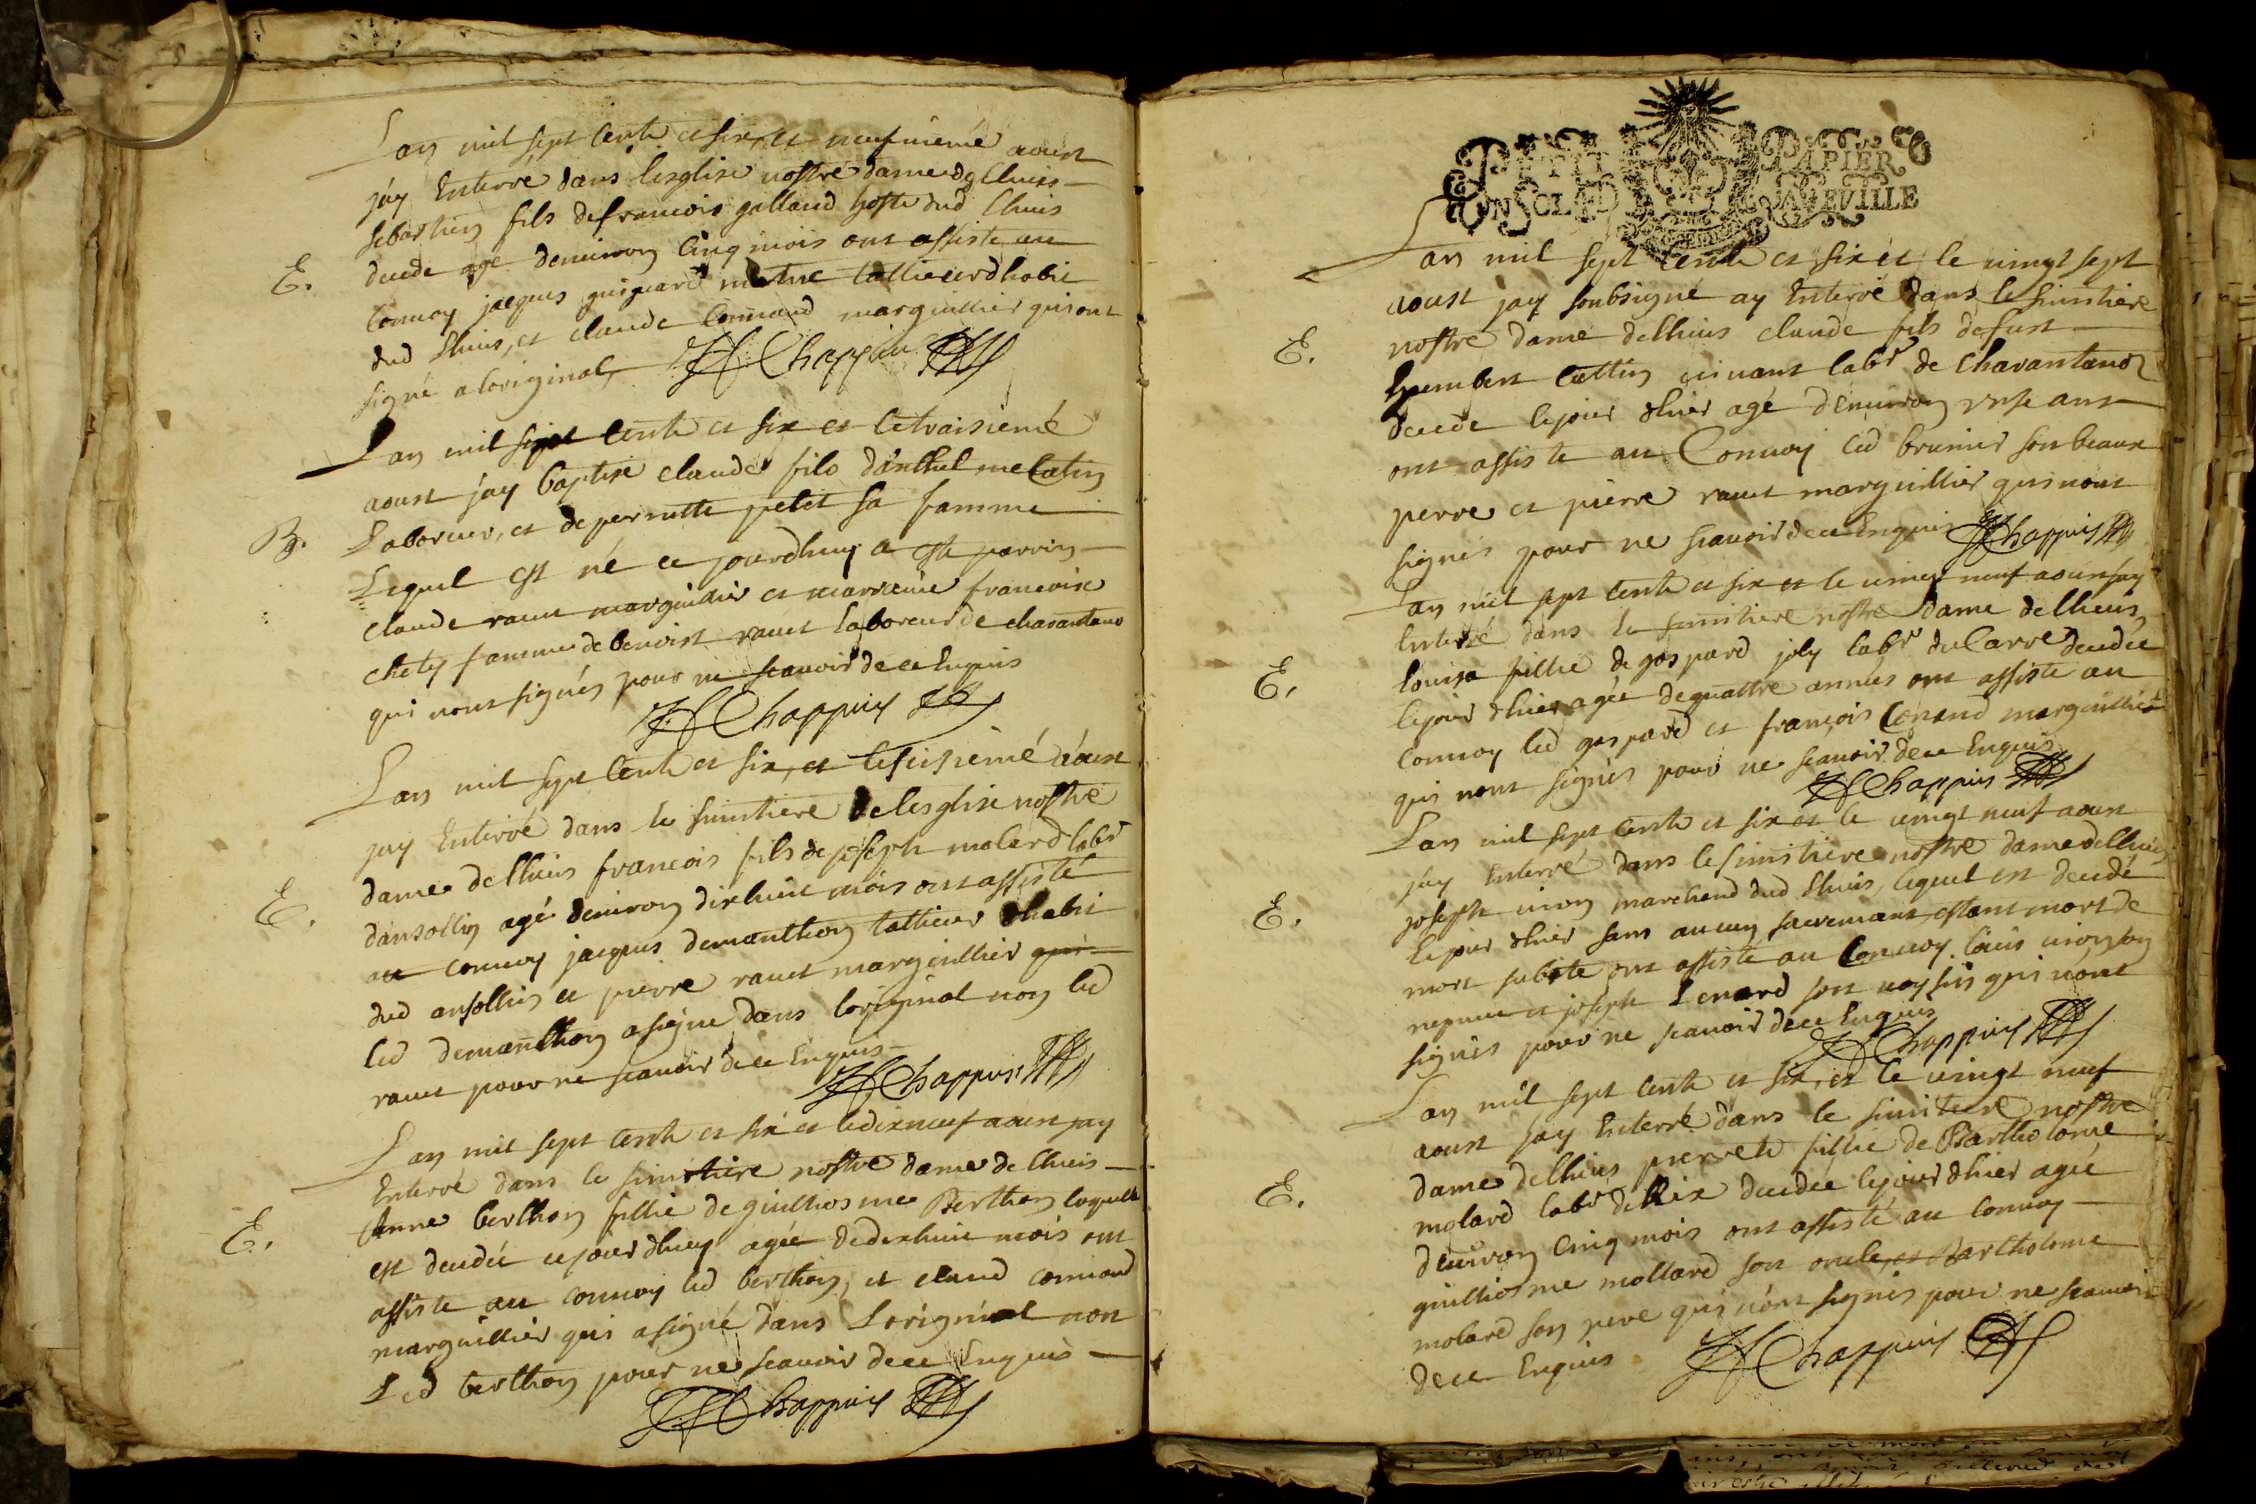 Lan mil sept cents et six, et neufvieme aoust
jay Enterré dans lesglise nostre dame de Lhuis
sebastien fils de francois galland hoste dud Lhuis
E.
decede agé denuiron cinq mois ont assisté au
Conuoy jacques guiguard maitre tallieur dhabit
dud Lhuis, et claude Connand marguillier qui ont
signé a loriginal, Chappuis
Lan mil sept cents et six et le troisiemé
aoust jay baptisé claude fils danthelme Catin
B.
Laboreur, et de pernette petit sa famme
Lequel est né ce jourdhuy a esté parrin
claude rauet marguillier et marreine francoise
chety famme de benoist rauet laboreur de chavantano
qui nont signés pour ne scauoir de ce Enquis
Chappuis
Lan mil sept cents et six, et le sisiemé daoust
jay Enterré dans le simitiere de lesglise nostre
dame de Lhuis francois fils de joseph molard labr
E.
dansollin agé denuiron dixhuit mois ont assisté
au conuoy jacques demanthon tallieur dhabit
dud ansollin et pierre rauet marguillier qui
led demanthon a signe dans loriginal non led
rauet pour ne scauoir de ce Enquis
Chappuis
Lan mil sept cents et six et le dixneuf aoust jay
Enterré dans le simitiere nostre dame de Lhuis
E.
Anne berthon fillie de guilliosme Berthon laquelle
est decedée ce jourdhuy agée de dixhuit mois ont
assisté au conuoy led berthon, et claud connand
marguillier qui a signé dans Loriginal non
Led berthon pour ne scauoir de ce Enquis
Chappuis
PETIT PAPIER
6
Lan mil sept cents et six et le vingt sept
aoust jay soubsigné ay Enterré dans le simitiere
E.
nostre dame de Lhuis claude fils defust
humbert Cattin viuant labr de Chavantano
decedé le jour dhier agé denuiron unse ans
ont assisté au Conuoy led brunier son beaux
perre et pierre rauet marguillier qui nont
signés pour ne scauoir de ce Enquis Chappuis
Lan mil sept cents et six et le vingt neuf aoust jay
Enterré dans le simitiere nostre dame de Lhuis
E.
louise fillie de gaspard joly labr du Carre decedée
le jour dhier agée de quattre années ont assisté au
conuoy led gaspard et françois Conand marguillier
qui nont signés pour ne scauoir de ce Enquis
Chappuis
Lan mil sept cents et six et le vingt neuf aoust
jay Enterré dans le simitiere nostre dame de Lhuis
E.
joseph marchand dud Lhuis, lequel est decedé
le jour dhier sans aucun sacremant estant mort de
mort subite ont assisté au Conuoy louis son
nepueu et joseph son uoysin qui nont
signés pour ne scauoir de ce Enquis
Chappuis
Lan mil sept cents et six, et le vingt neuf
aoust jay Enterré dans le simitiere nostre
E.
dame de Lhuis pierrete fillie de Bartholome
molard labr de Rix decedée le jour dhier agée
denuiron cinq mois ont assisté au conuoy
guilliosme mollard son oncle, et Bartholome
molard son pere qui nont signés pour ne scauoir
de ce Enquis Chappuis